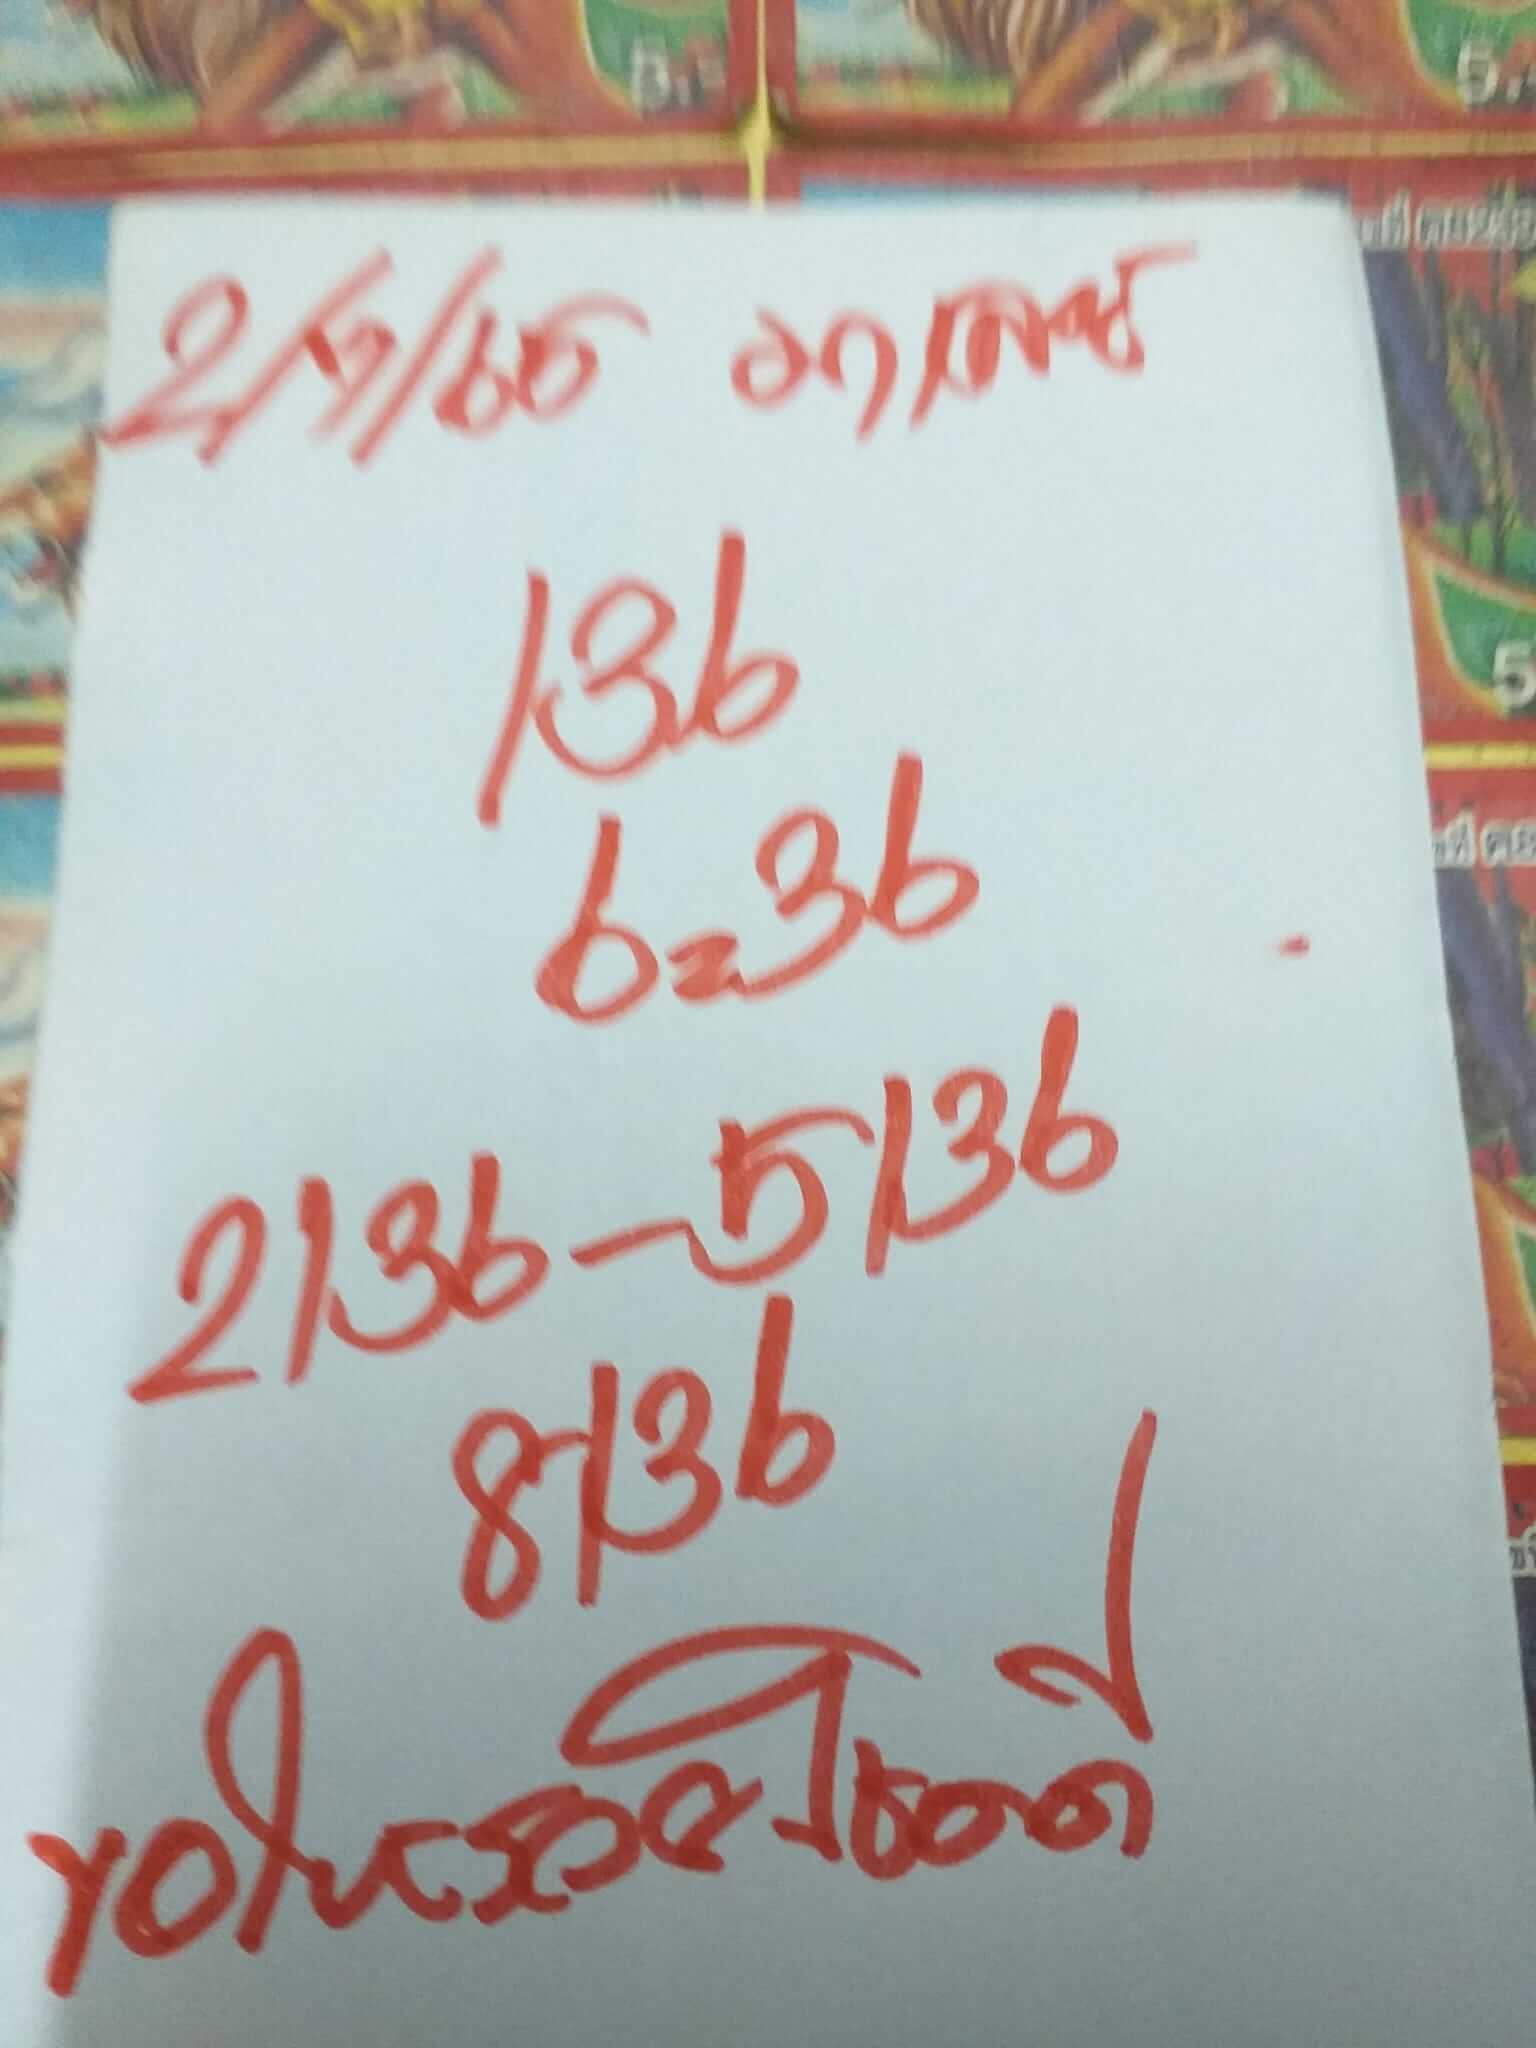 2/7/65 อาเดช
136
6=36
2136-5136
8136
ขอให้รวยโชคดี
5